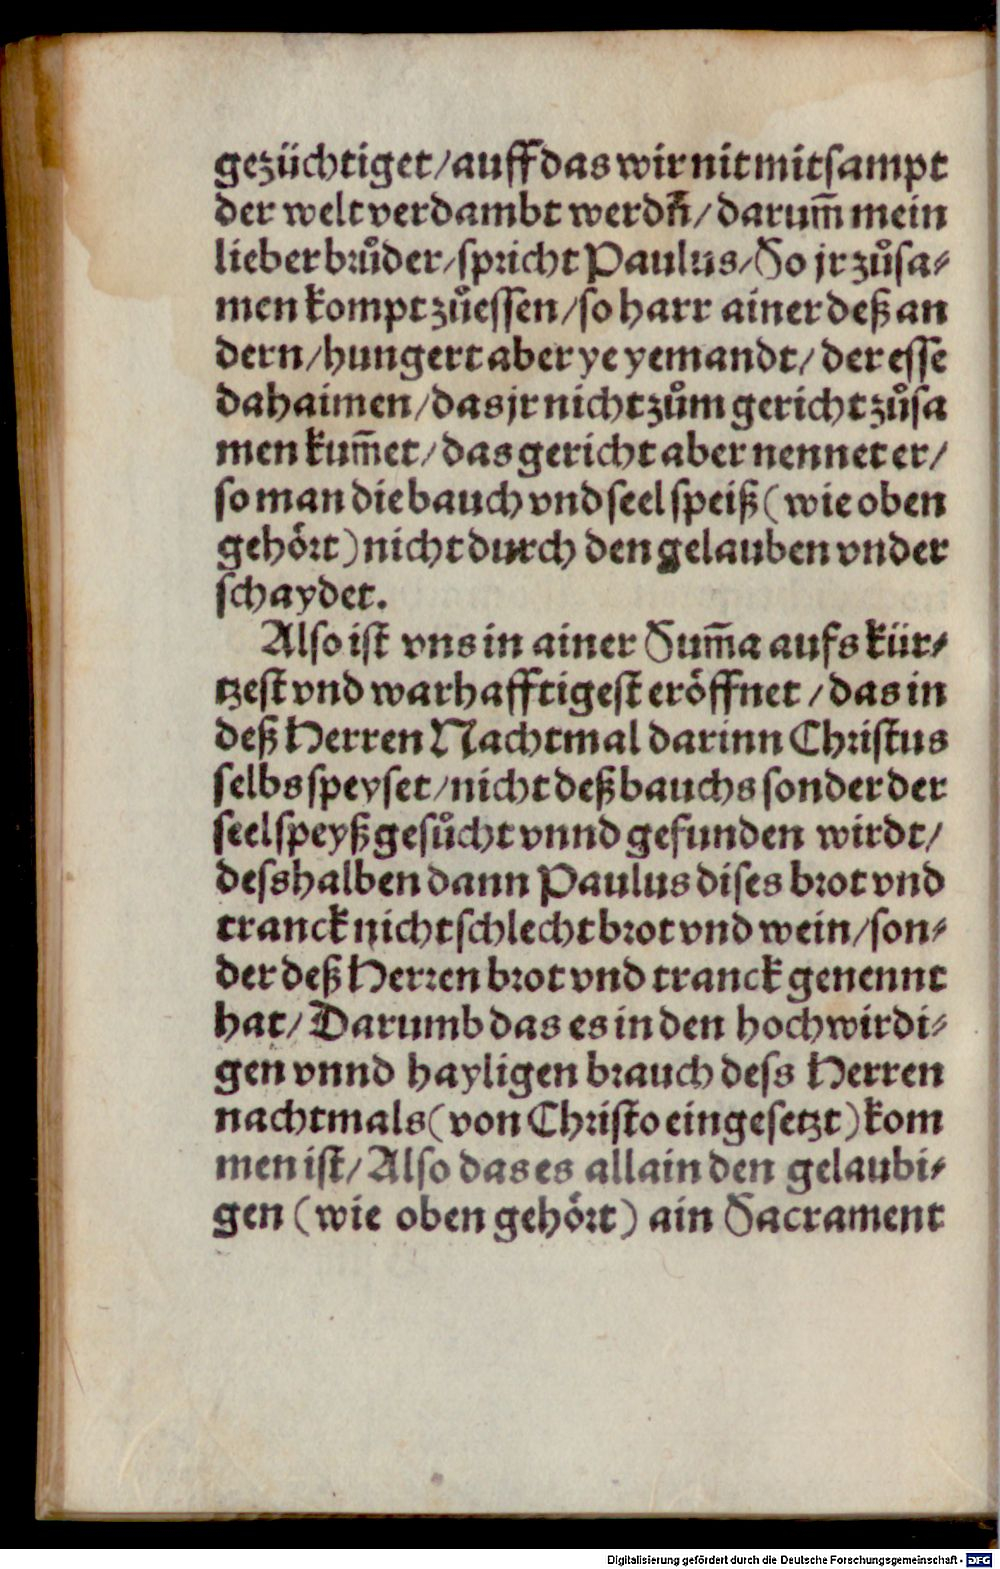 gezüchtiget/ auff das wir nit mitsampt
der welt verdambt werdn̄/ darum̄ mein
lieber brůder/ spricht Paulus/ So jr zůsa-
men kompt zůessen/ so harr ainer deß an
dern/ hungert aber ye yemandt/ der esse
dahaimen/ das jr nicht zům gericht zůsa
men kum̄et/ das gericht aber nennet er/
so man die bauch vnd seel speiß (wie oben
gehört) nicht durch den gelauben vnder
schaydet.
Also ist vns in ainer Sum̄a aufs kür-
tzest vnd warhafftigest eröffnet/ das in
deß Herren Nachtmal darinn Christus
selbs speyset/ nicht deß bauchs sonder der
seel speyß gesůcht vnnd gefunden wirdt/
desshalben dann Paulus dises brot vnd
tranck nicht schlecht brot vnd wein/ son-
der deß Herren brot vnd tranck genennt
hat/ Darumb das es in den hochwirdi-
gen vnnd hayligen brauch dess Herren
nachtmals (von Christo eingesetzt) kom
men ist/ Also das es allain den gelaubi-
gen (wie oben gehört) ain Sacrament
Digitalisierung gefördert durch die Deutsche Forschungsgemeinschaft - DFG